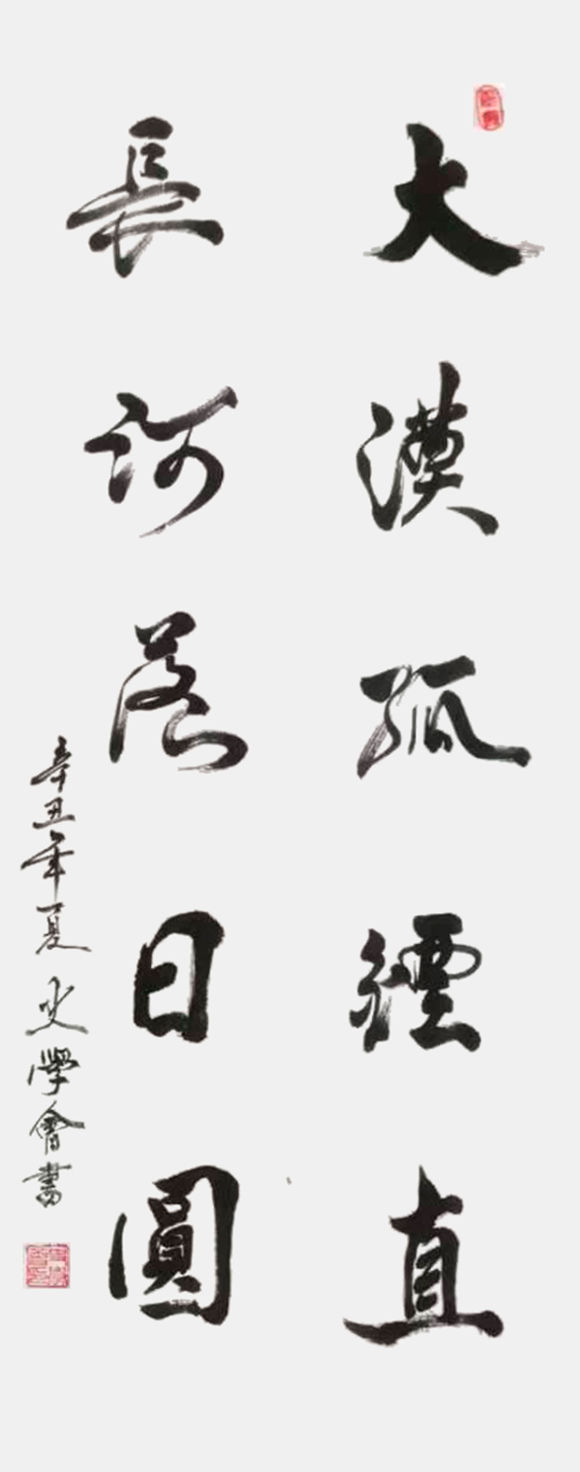 大漠孤煙直
長河落日圓
辛丑年夏史學會書